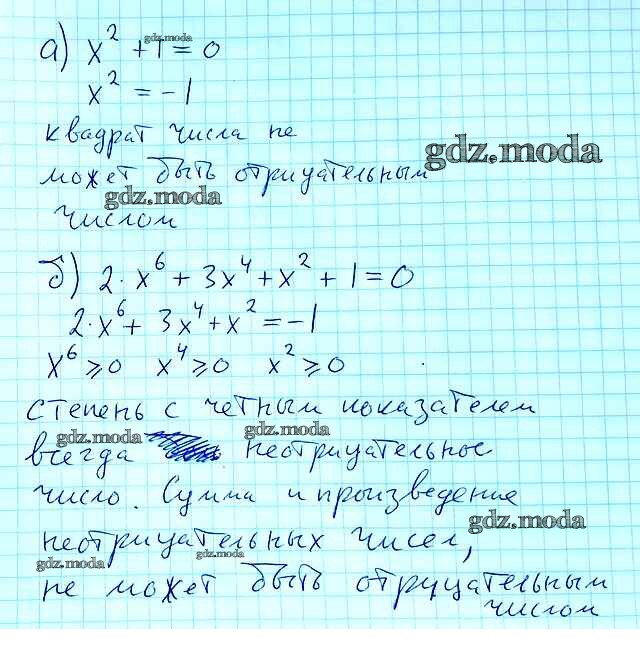 а) x² + 1 = 0
x² = -1
квадрат числа не
может быть отрицательным
числом
б) 2·x⁶ + 3x⁴ + x² + 1 = 0
2·x⁶ + 3x⁴ + x² = -1
x⁶ ⩾ 0 x⁴ ⩾ 0 x² ⩾ 0
степень с четным показателем
всегда неотрицательное
число. Сумма и произведение
неотрицательных чисел,
не может быть отрицательным
числом
gdz.moda
gdz.moda
gdz.moda
gdz.moda
gdz.moda
gdz.moda
gdz.moda
gdz.moda